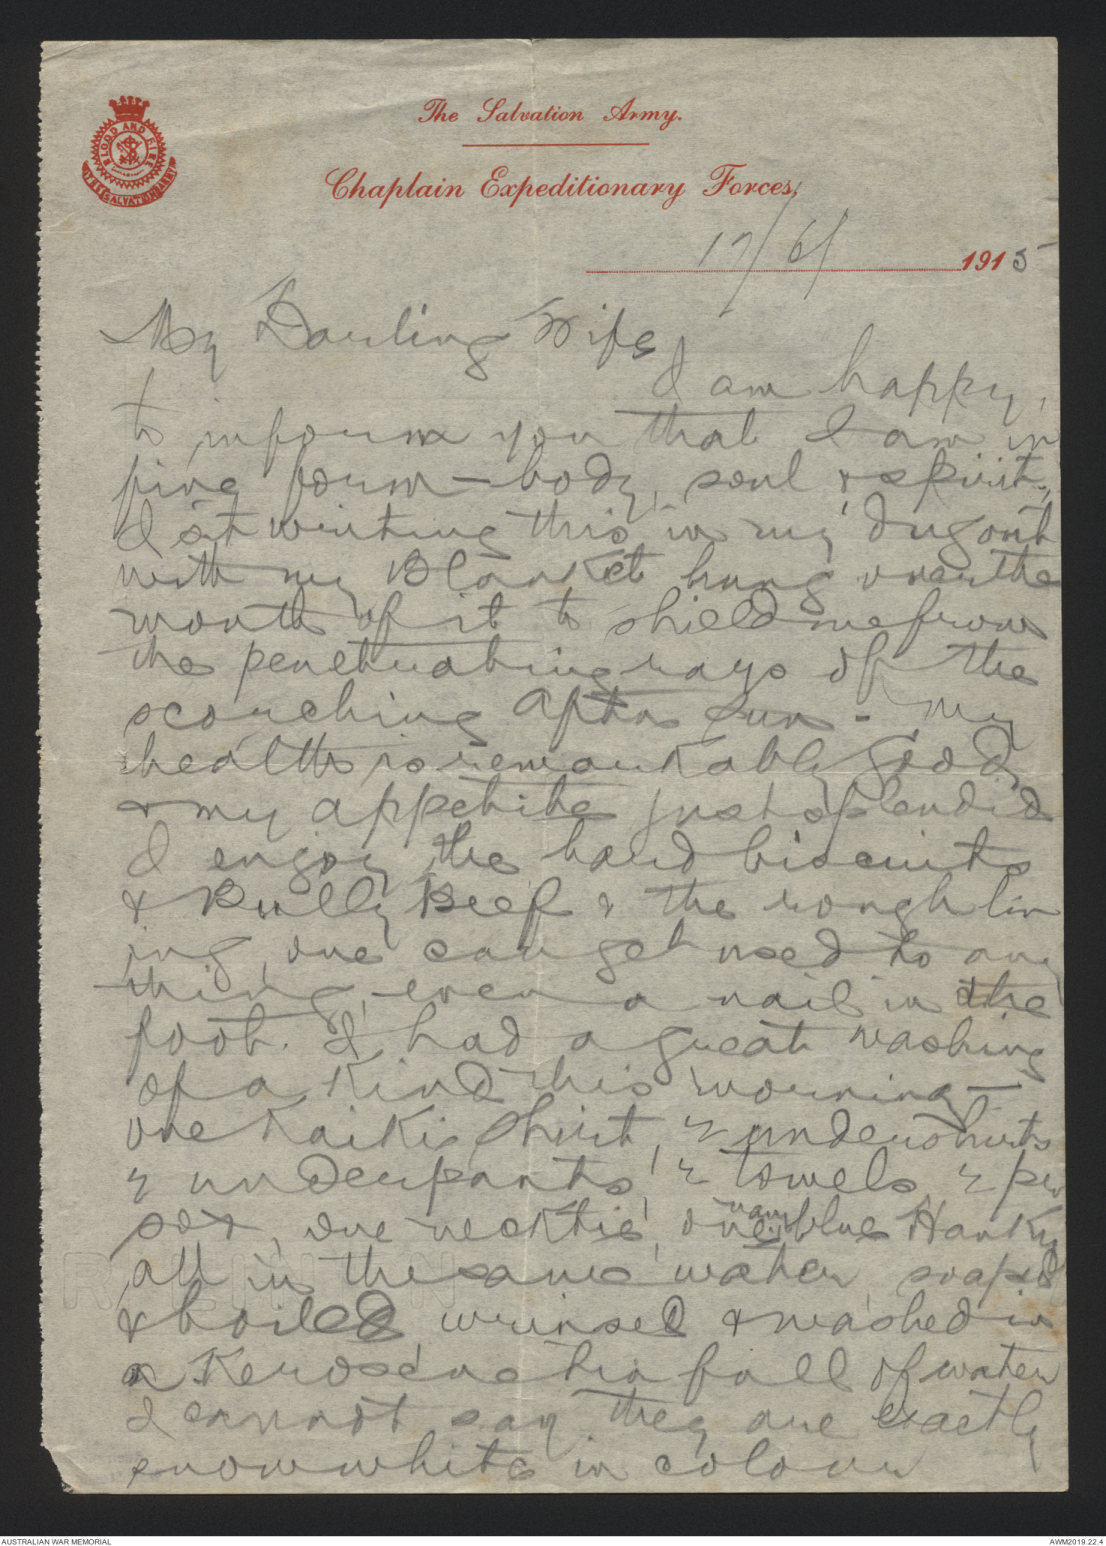 The Salvation Army.
BLOOD AND FIRE
THE SALVATION ARMY
Chaplain Expeditionary Forces,
17/6/ 1915
My Darling Wife
I am happy,
to inform you that I am in
fine form - body, soul & spirit,
I sit writing this in my dugout
with my Blanket hung over the
mouth of it to shield me from
the penetrating rays of the
scorching aftn sun - My
health is remarkably good,
& my appetite just splendid
I enjoy the hard biscuits
& Bully Beef & the rough liv
ing, one can get used to any
thing, even a nail in the
foot. I had a great washing
of a kind this morning -
one Kaiki Shirt, 2 undershirts
2 underpants, 2 towels 2 pr
sox, one necktie, one navy blue Hanky
all in the same water, soaped
& boiled wrinsed & washed in
a Kerosene tin full of water
I cannot say they are exactly
snowwhite in colour
AUSTRALIAN WAR MEMORIAL
AWM2019.22.4